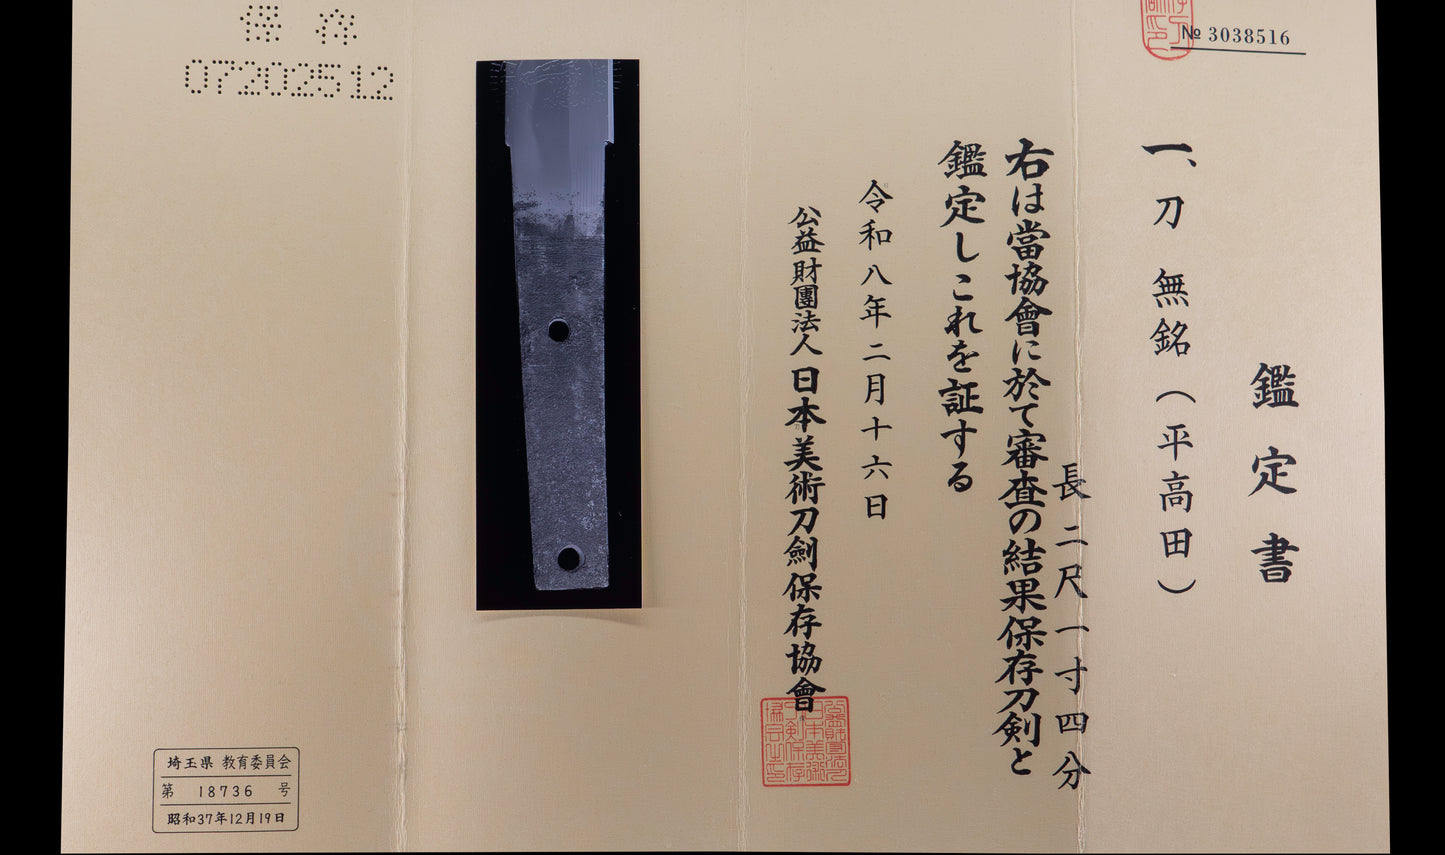 № 3038516
鑑定書
一、刀 無銘（平高田）
長二尺一寸四分
右は當協會に於て審査の結果保存刀剣と
鑑定しこれを証する
令和八年二月十六日
公益財團法人日本美術刀劍保存協會
保存
07202512
埼玉県 教育委員会
第 18736 号
昭和37年12月19日